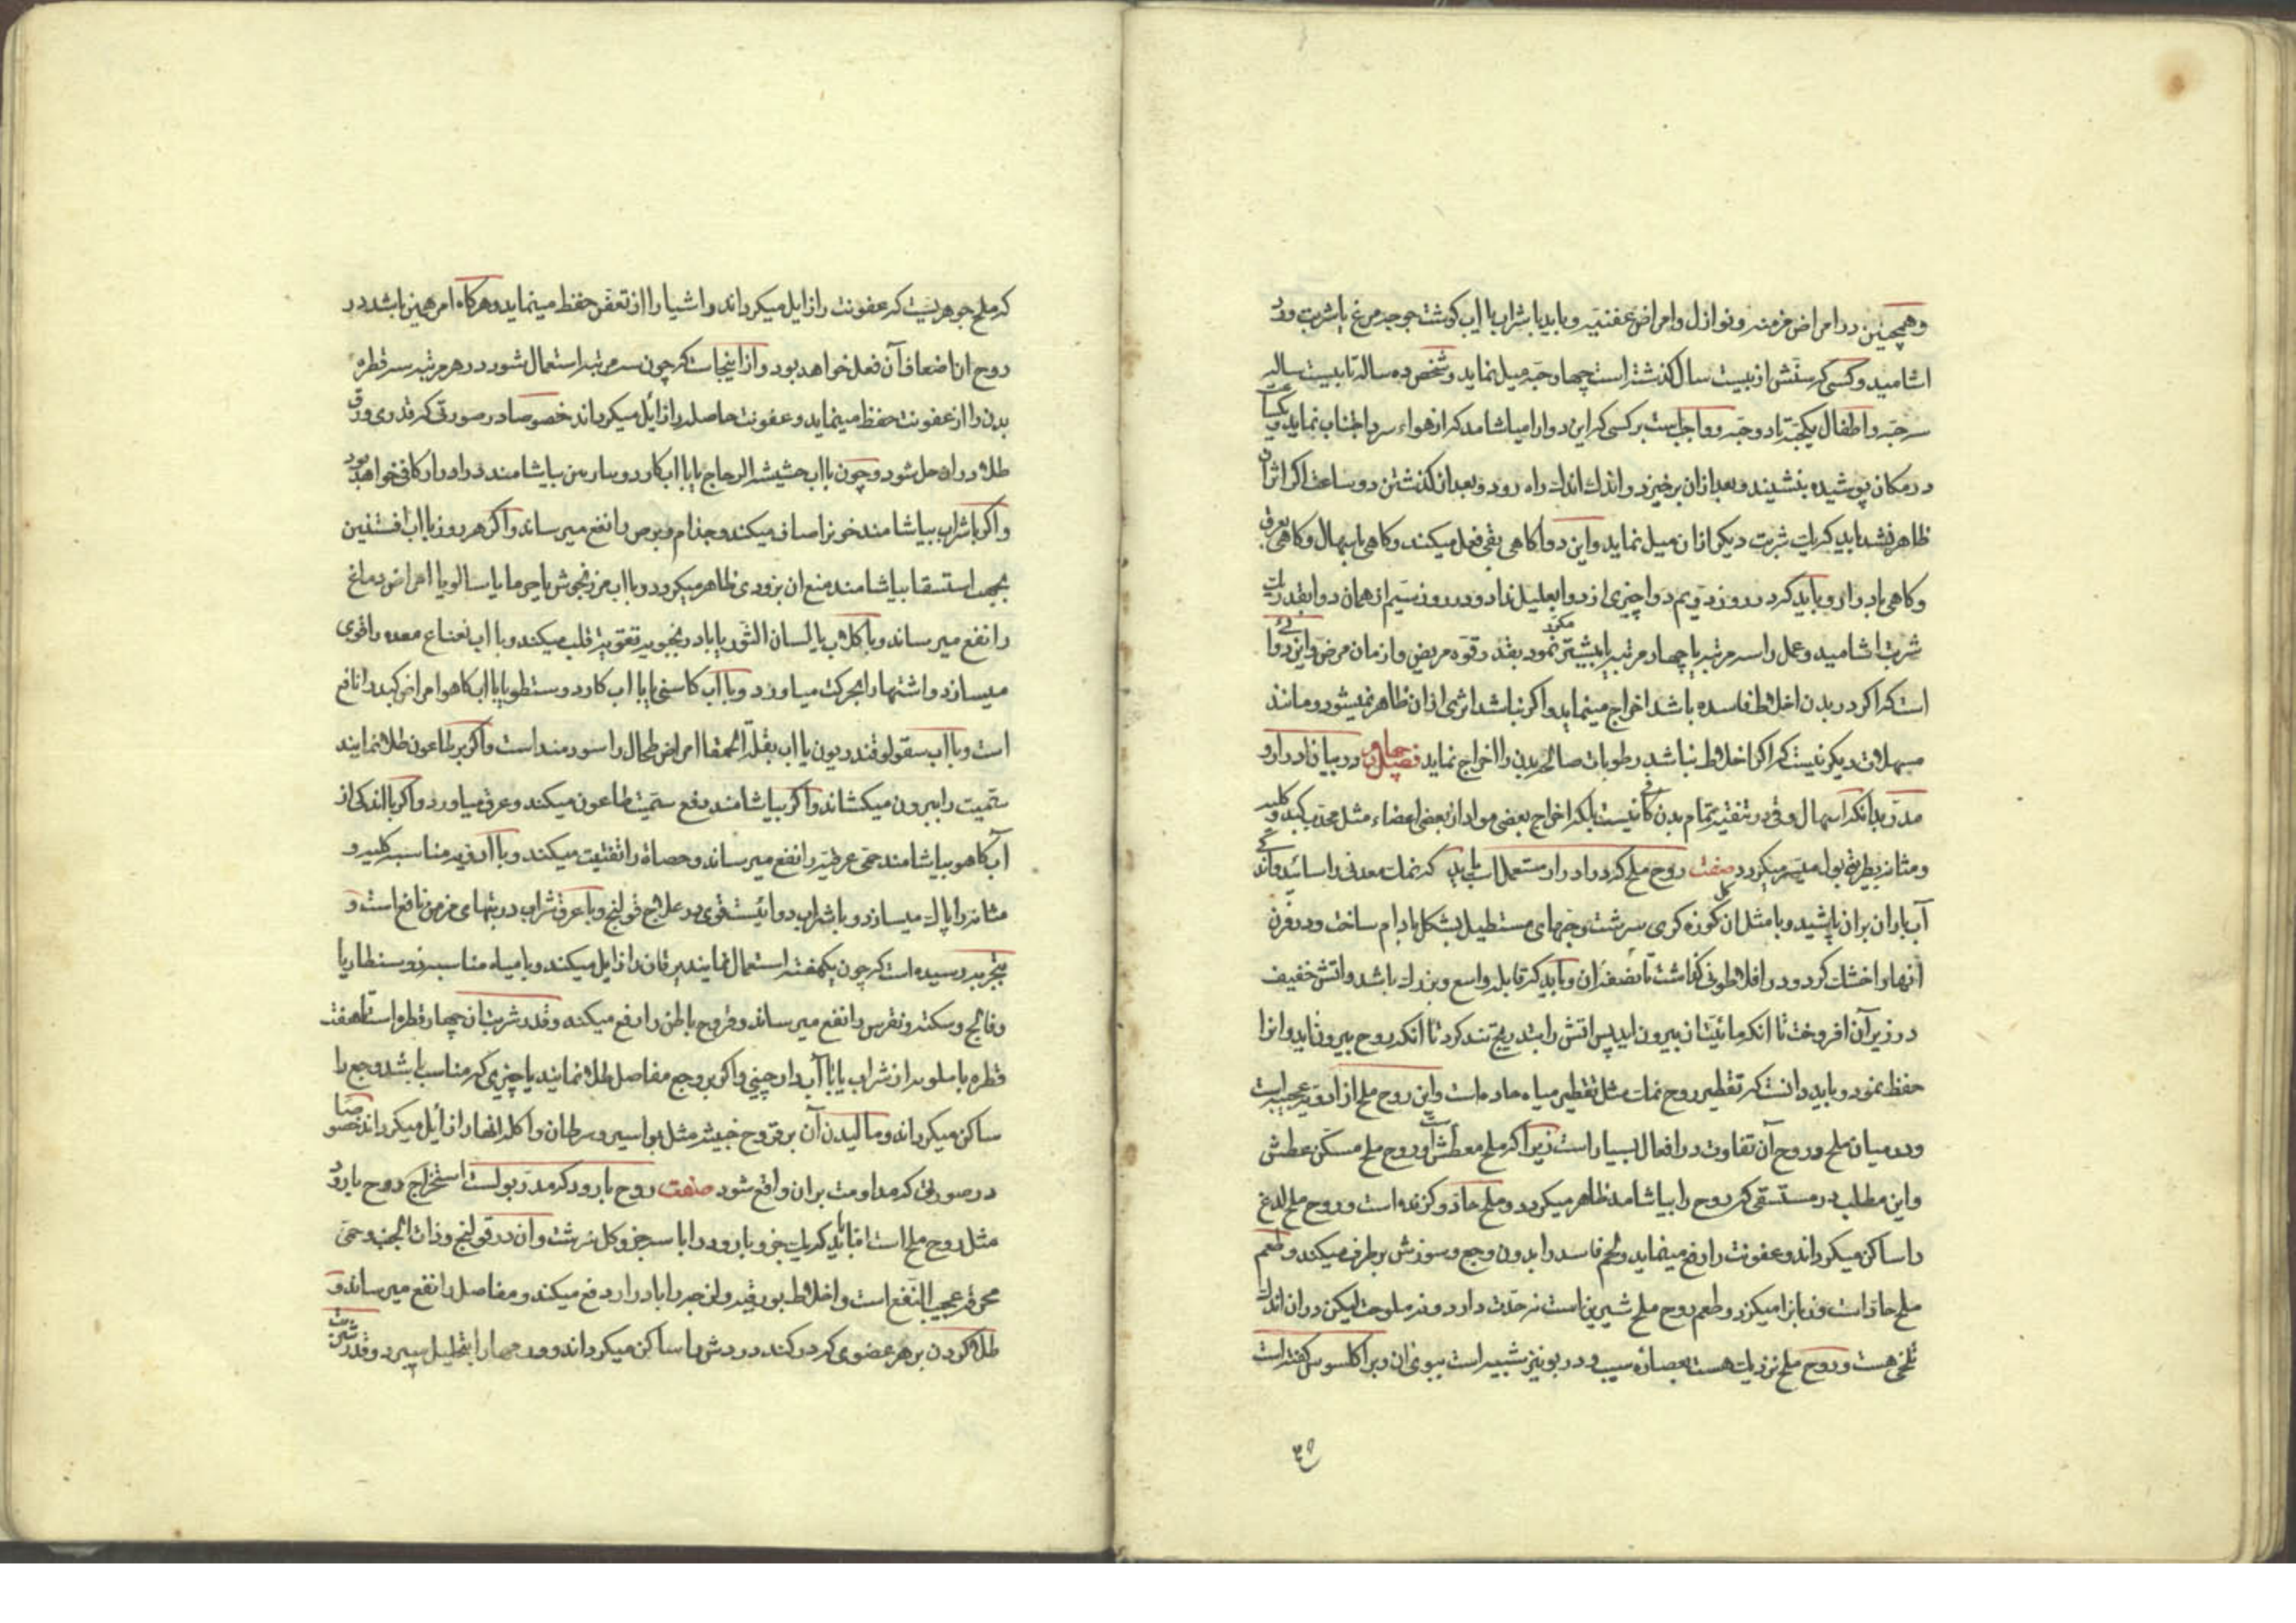 وهمچنین در امراض مزمنه و نوازل و امراض عفنیه و باید با شراب یا آب کوشت جوجه مرغ یا شربت ورد
اشامید و کسی که سنش از بیست سال کذشته است چهار حبه میل نماید و شخص ده ساله تا بیست ساله
سه حبه و اطفال یکحبه تا دو حبه و واجب است بر کسی که این دوا را میاشامد که از هواء سرد اجتناب نماید و یکساعت
در مکان پوشیده بنشیند و بعد ازان برخیزد و اندک اندک راه رود و بعد از کذشتن دو ساعت اکر اثر آن
ظاهر نشد باید که یک شربت دیکر ازان میل نماید و این دوا کاهی بقی فعل میکند و کاهی باسهال و کاهی بعرق
و کاهی بادرار و باید که در روز دویم دوا چیزی از دوا بعلیل نداد و در روز سیم از همان دوا بقدر یک
شربت اشامید و عمل را سه مرتبه یا چهار مرتبه یا بیشتر مکرر نمود بقدر قوه مریض و ازمان مرض و این دوائی
است که اکر در بدن اخلاط فاسده باشد اخراج مینماید و اکر نباشد اثری ازان ظاهر نمیشود و مانند
مسهلات دیکر نیست که اکر اخلاط نباشد رطوبات صالح بدن را اخراج نماید فصل چهارم در بیان ادرار و
مدر بدانکه اسهال و قی در تنقیه تمام بدن کافی نیست بلکه اخراج بعضی مواد از بعضی اعضاء مثل محدب کبد و کلیه
و مثانه بطریق بول میسر میکردد صفت روح ملح که در ادرار مستعمل است باید که نمک معدنی را سائید و اندکی
آب باران بران پاشید و با مثل ان کل کوزه کری سرشت و چیزهای مستطیل بشکل بادام ساخت و در فرن
انها را خشک کرد و در افلاطونی کذاشت تا نصف ان و باید که قابله واسع و بزرک باشد و اتش خفیف
در زیر آن افروخت تا انکه مائیت ان بیرون اید پس اتش را بتدریج تند کرد تا انکه روح بیرون اید و انرا
حفظ نمود و باید دانست که تقطیر روح نمک مثل تقطیر میاه حاده است و این روح ملح از ادویه عجیبه است
و در میان ملح و روح آن تفاوت در افعال بسیار است زیرا که ملح معطش است و روح ملح مسکن عطش
و این مطلب در مستسقی که روح را بیاشامد ظاهر میکردد و ملح حاد و کزنده است و روح ملح لدغ
را ساکن میکرداند و عفونت را رفع مینماید و لحم فاسد را بدون وجع و سوزش برطرف میکند و طعم
ملح حاد است و زبانرا میکزد و طعم روح ملح شیرین است نه حدت دارد و نه ملوحت لیکن دران اندک
تلخی هست و روح ملح نزدیک هست بعصاره سیب و در بو نیز شبیه است ببوی ان و براکلسوس کفته است
که ملح جوهریست که عفونت را زایل میکرداند و اشیا را از تعفن حفظ مینماید و هرکاه امر همین باشد در
روح ان اضعاف آن فعل خواهد بود و از اینجاست که چون سه مرتبه استعمال شود در هر مرتبه سه قطره
بدن را از عفونت حفظ مینماید و عفونت حاصله را زائل میکرداند خصوصا در صورتی که قدری ورق
طلا دران حل شود و چون با اب حشیشة الزجاج یا با اب کاردوسارس بیاشامند در ادرار کافی خواهد بود
و اکر با شراب بیاشامند خونرا صاف میکند و جذام و برص را نفع میرساند و اکر هر روز با اب افسنتین
بجهت استسقا بیاشامند منع ان بزودی ظاهر میکردد و با اب مرزنجوش یا چوما یا سالویا امراض دماغ
را نفع میرساند و با کلاب یا لسان الثور یا بادرنجبویه تقویت قلب میکند و با اب نعناع معده را قوی
میسازد و اشتها را بحرکت میاورد و با آب کاسنی یا با اب کاردوسنطو یا با اب کاهو امراض کبد را نافع
است و با اب سقولوقندریون یا اب بقلة الحمقا امراض طحال را سودمند است و اکر بر طاعون طلا نمایند
سمیت را بیرون میکشاند و اکر بیاشامند دفع سمیت طاعون میکند و عرق میاورد و اکر با اندکی از
آب کاهو بیاشامند حمی عرضیه را نفع میرساند و حصاة را تفتیت میکند و با ادویه مناسبه کلیه و
مثانه را پاک میسازد و با شراب دوائیست قوی در علاج قولنج و با عرق شراب در تبهای مزمن نافع است و
بتجربه رسیده است که چون یکهفته استعمال نمایند یرقان را زایل میکند و با میاه مناسبه ذوسنطاریا
و فالج و سکته و نقرس را نفع میرساند و قروح باطن را رفع میکند و قدر شربت ان چهار قطره است تا هفت
قطره با ملو به از شراب یا با آب دارچینی و اکر بر وجع مفاصل طلا نمایند یا چیزی که مناسب باشد وجع را
ساکن میکرداند و مالیدن آن بر قروح خبیثه مثل بواسیر و سرطان و اکله انها را زائل میکرداند خصوصا
در صورتی که مداومت بران واقع شود صفت روح بارود که مدر بولست استخراج روح بارود
مثل روح ملح است اما باید که یک جزو بارود را با سه جزو کل سرشت و ان در قولنج و ذات الجنب و حمی
محرقه عجیب النفع است و اخلاط بورقیه و لزجه را بادرار دفع میکند و مفاصل را نفع میرساند و
طلا کردن بر هر عضوی که درد کند دردش را ساکن میکرداند و ورمها را بتحلیل میبرد و قدر شربت